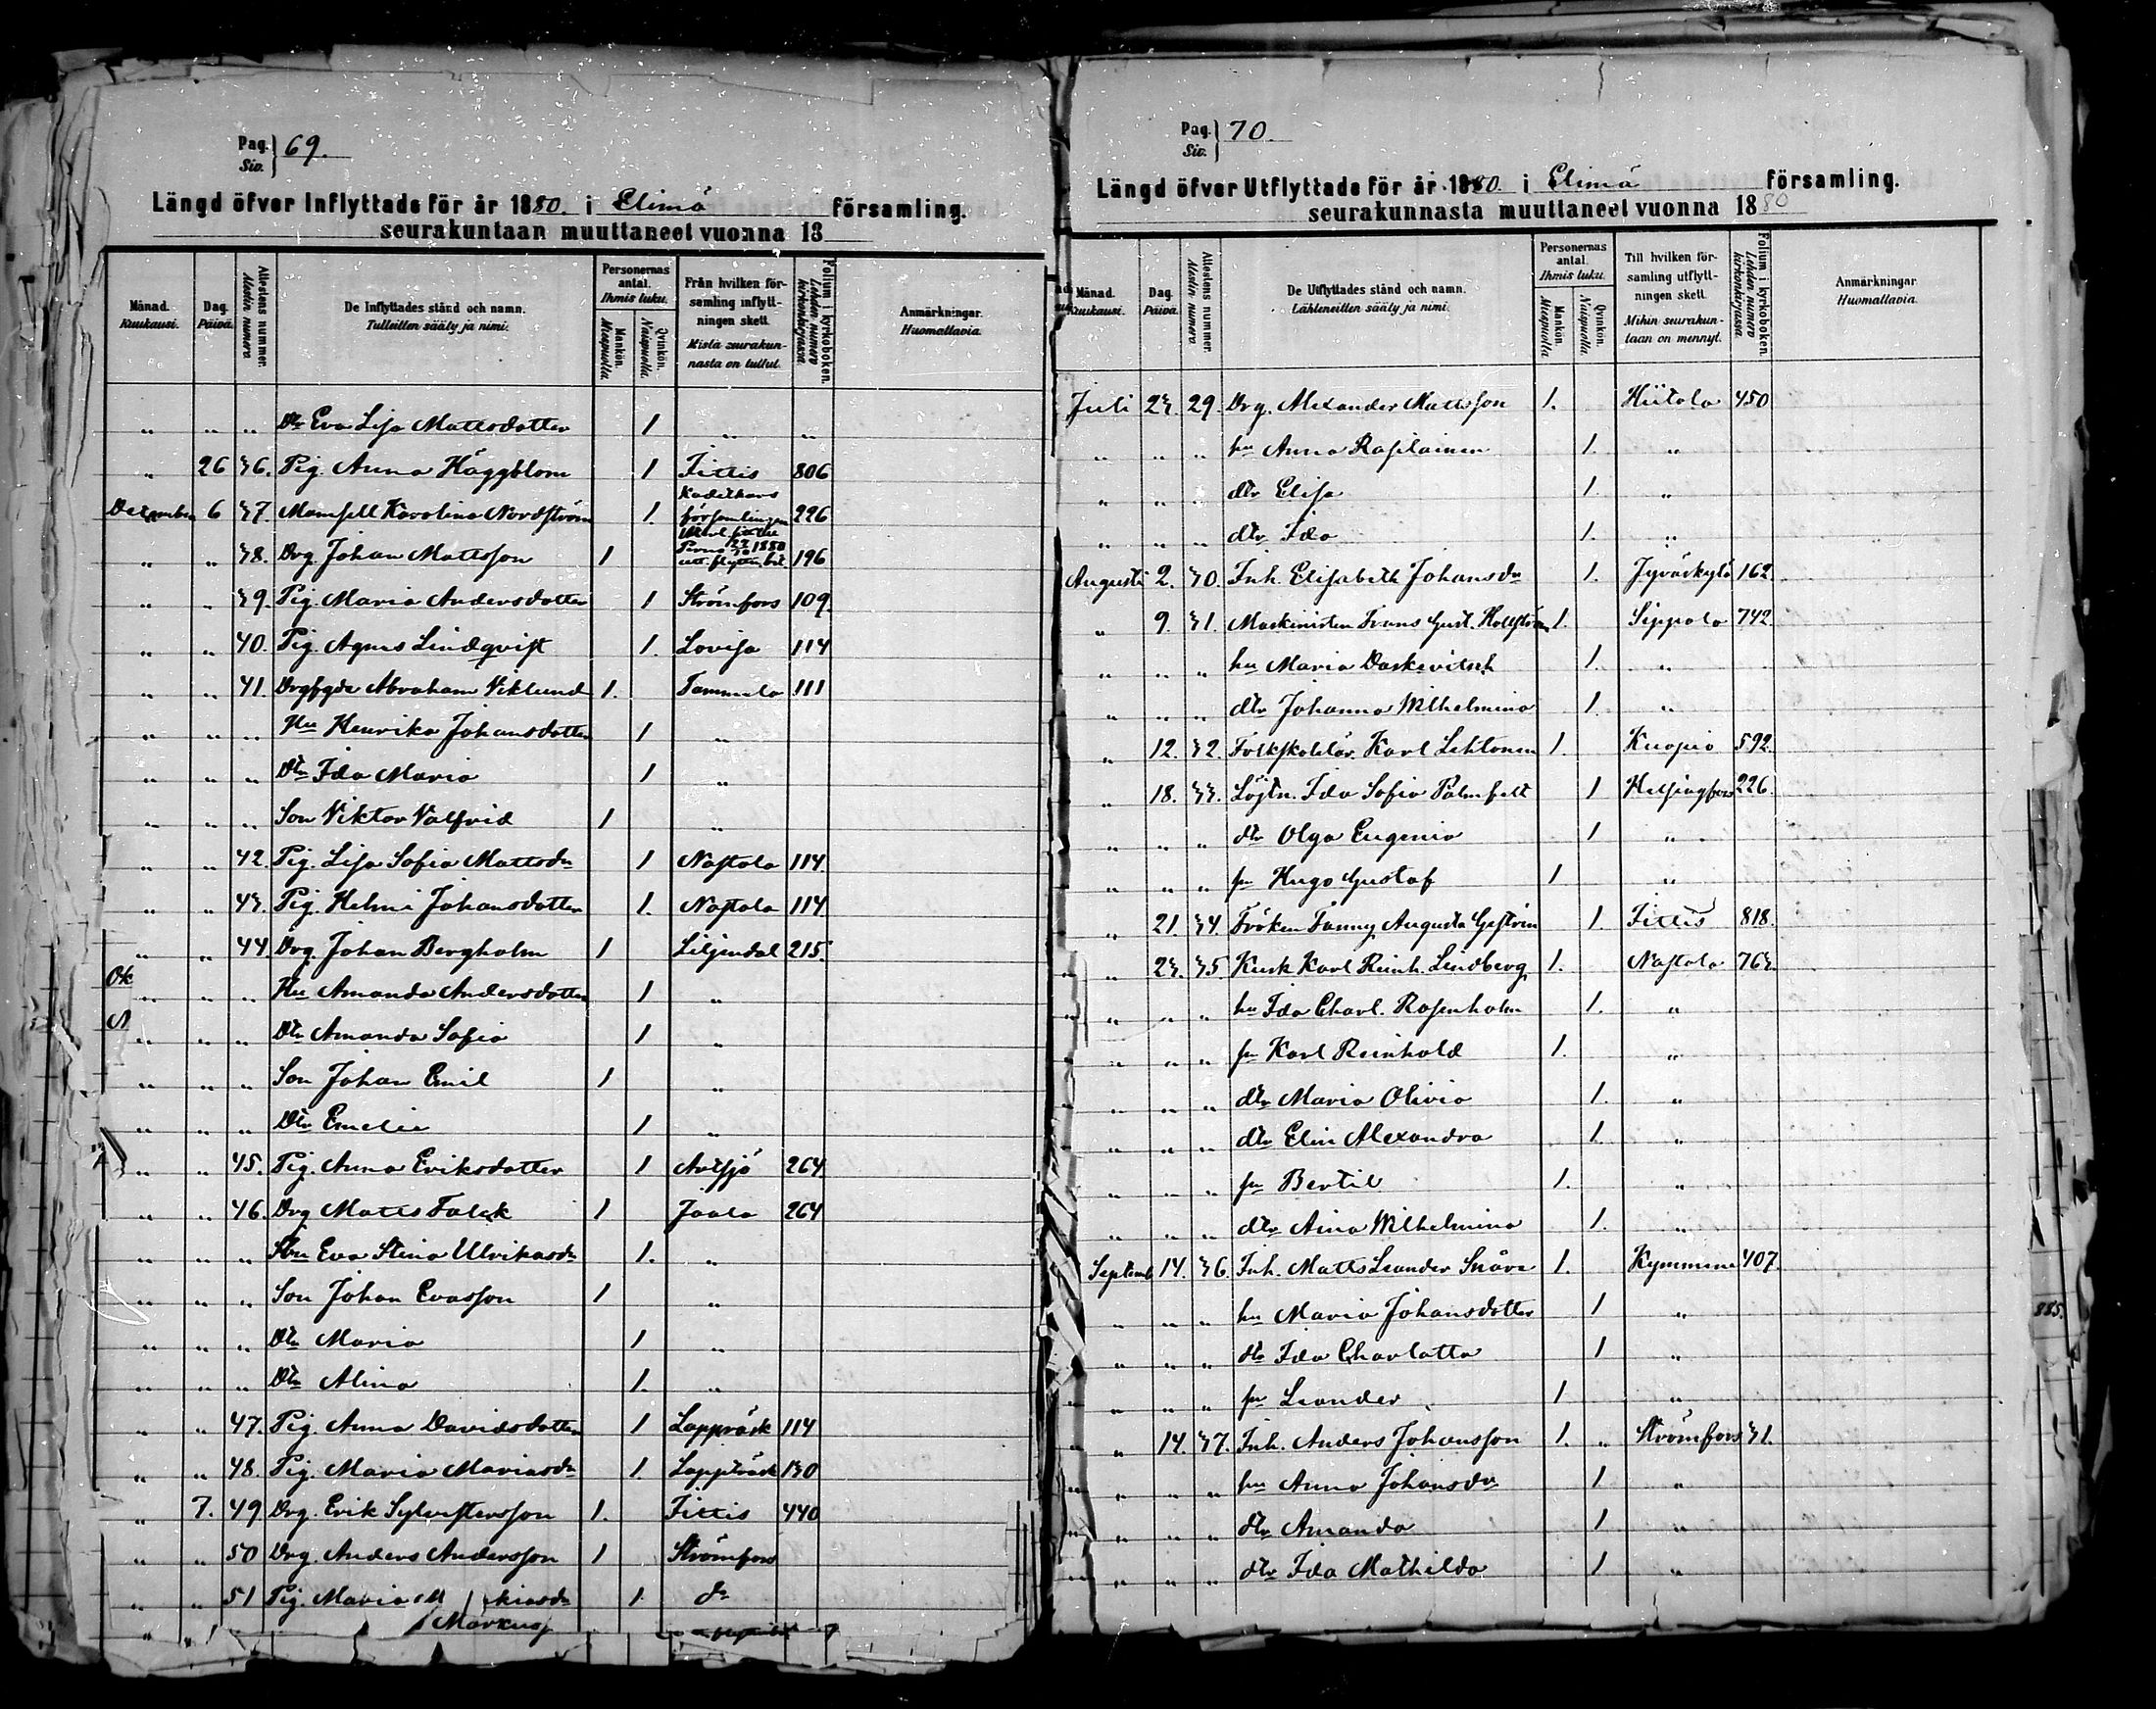 Pag. Siv. 69.
Längd öfver Inflyttade för år 1880. i Elimä församling.
seurakuntaan muuttaneet vuonna 18
Månad. Kuukausi.
Dag. Päivä.
Attestens nummer. Atestin numero
De Inflyttades stånd och namn. Tulleitten sääty ja nimi.
Personernas antal. Ihmis luku.
Mankön. Miespuolia
Qvinkön. Naispuolia.
Från hvilken församling inflyttningen skett. Mistä seurakunnasta on tullut.
Folium i kyrkoboken. Lehden numero kirkonkirjassa.
Anmärkningar. Huomattavia.
„ „ „ Dtr Eva Lisa Mattsdotter 1 „ „
„ 26 36. Pig. Anna Häggblom 1 Itittis 806
December 6 37. Mamsell Karolina Nordström 1. Kadettkors församlingen 226
„ „ 38. Drg. Johan Mattsson 1 Perno 1880 utt. flyttn. bet. 196
„ „ 39. Pig. Maria Andersdotter 1 Strömfors 109.
„ „ 40. Pig. Agnes Lindqvist 1. Lovisa 114
„ „ 41. Drgfgde Abraham Viklund 1. Tammela 111
„ „ „ Hu Henrika Johansdotter 1 „
„ „ „ Dtr Ida Maria 1 „
„ „ „ Son Viktor Valfrid 1 „
„ „ 42. Pig. Lisa Sofia Mattsdr 1 Nastola 114.
„ „ 43. Pig. Helmi Johansdotter 1. Nastola 114
„ „ 44 Drg. Johan Bergholm 1 Liljendal 215.
Ok „ „ „ Hu Amanda Andersdotter 1 „
„ „ „ Dtr Amanda Sofia 1 „
„ „ „ Son Johan Emil 1 „
„ „ „ Dtr Emelie 1 „
„ „ 45. Pig. Anna Eriksdotter 1 Artsjö 264
„ „ 46. Drg Matts Falck 1 Jaala 264
„ „ „ Hu Eva Stina Ulrikasdr 1. „
„ „ „ Son Johan Evasson 1 „
„ „ „ Dtr Maria 1 „
„ „ „ Dtr Alina 1. „
„ „ 47. Pig. Anna Davidsdotter 1 Lappträsk 114
„ „ 48. Pig. Maria Mariasdr 1. Lappträsk 130
„ 7. 49 Drg. Erik Sylvestersson 1. Itittis 440
„ „ 50 Drg. Anders Andersson 1 Strömfors
„ „ 51 Pig. Maria M kiasdr 1. do
„ „ Markus
Pag. Siv. 70.
Längd öfver Utflyttade för år 1880. i Elimä församling.
seurakunnasta muuttaneet vuonna 1880
Månad. Kuukausi.
Dag. Päivä.
Attestens nummer. Atestin numero
De Utflyttades stånd och namn. Lähteneitten sääty ja nimi.
Personernas antal. Ihmis luku.
Mankön. Miespuolia
Qvinkön. Naispuolia.
Till hvilken församling utflyttningen skett. Mihin seurakuntaan on mennyt.
Folium i kyrkoboken. Lehden numero kirkonkirjassa.
Anmärkningar. Huomattavia.
Juli 23. 29. Drg. Alexander Mattsson 1. Hiitola 450
„ „ „ hu Anna Rasilainen 1. „
„ „ „ dtr Elisa 1. „
„ „ „ dtr Ida 1. „
Augusti 2. 30. Inh. Elisabeth Johansdr 1. Jyväskylä 162
„ 9. 31. Maskinisten Frans Gust. Hallström 1. Sippola 742
„ „ „ hu Maria Daskevitsch 1. „
„ „ „ dtr Johanna Wilhelmina 1. „
„ 12. 32. Folkskolelär. Karl Lehtonen 1. Kuopio 592
„ 18. 33. Löjtn. Ida Sofia Palmfelt 1 Helsingfors 226.
„ „ „ dtr Olga Eugenia 1 „
„ „ „ sn Hugo Gustaf 1 „
„ 21. 34. Fröken Fanny Augusta Gestrin 1. Itittis 818.
„ 23. 35 Kusk Karl Reinh. Lindberg 1. Nastola 763.
„ „ „ hu Ida Charl. Rosenholm 1. „
„ „ „ sn Karl Reinhold 1. „
„ „ „ dtr Maria Olivia 1. „
„ „ „ dtr Elin Alexandra 1. „
„ „ „ sn Bertil 1. „
„ „ „ dtr Aina Wilhelmina 1. „
Septemb 14. 36. Inh. Matts Leander Snåre 1. Kymmene 407.
„ „ „ hu Maria Johansdotter 1 „
„ „ „ dtr Ida Charlotta 1 „
„ „ „ sn Leander 1 „
„ 14. 37. Inh. Anders Johansson 1. „ Strömfors 31.
„ „ „ hu Anna Johansdr 1 „
„ „ „ dtr Amanda 1 „
„ „ „ dtr Ida Mathilda 1 „
885.